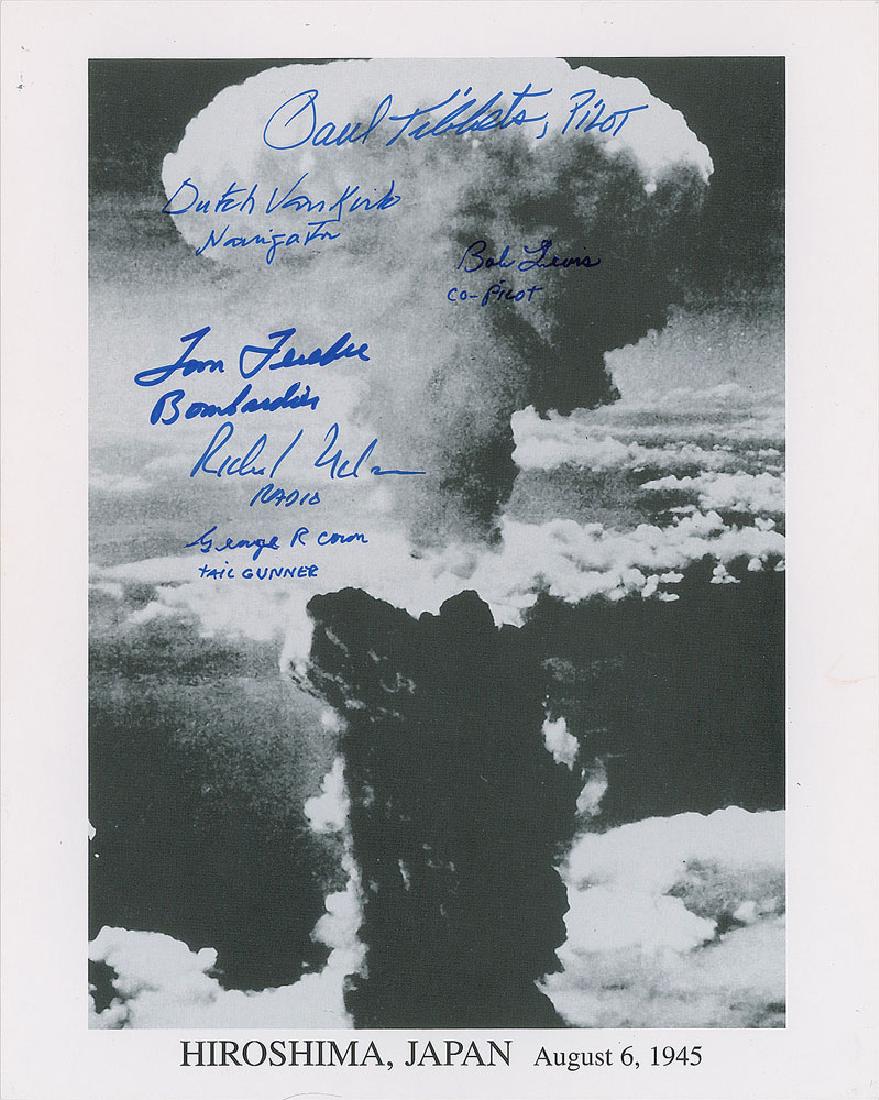 Paul Tibbets, Pilot
Dutch Van Kirk
Navigator
Bob Lewis
co-pilot
Tom Ferebee
Bombardier
Richard Nelson
RADIO
George R Caron
tAil GUNNER
HIROSHIMA, JAPAN August 6, 1945